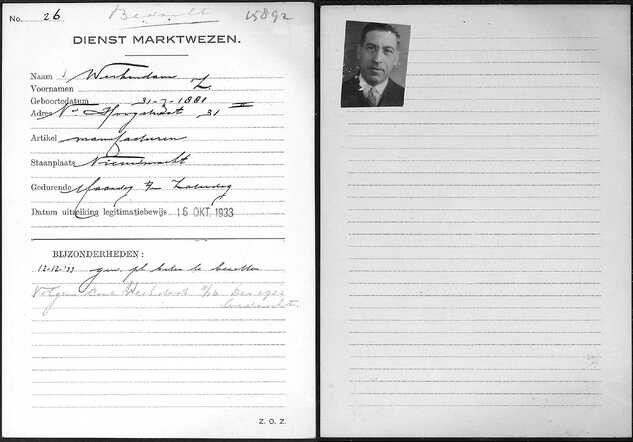 No. 26 Bedankt 15892
DIENST MARKTWEZEN.
Naam Werkendam
Voornamen Z
Geboortedatum 31-7-1881
Adres Nwe Hoogstraat 31 II
Artikel manufacturen
Staanplaats Nieuwmarkt
Gedurende Maandag t/m Zaterdag
Datum uitreiking legitimatiebewijs 16 OKT. 1933
BIJZONDERHEDEN:
12-12-'33 gew. pl. te bezetten
Volgens
bedankt.
Z. O. Z.